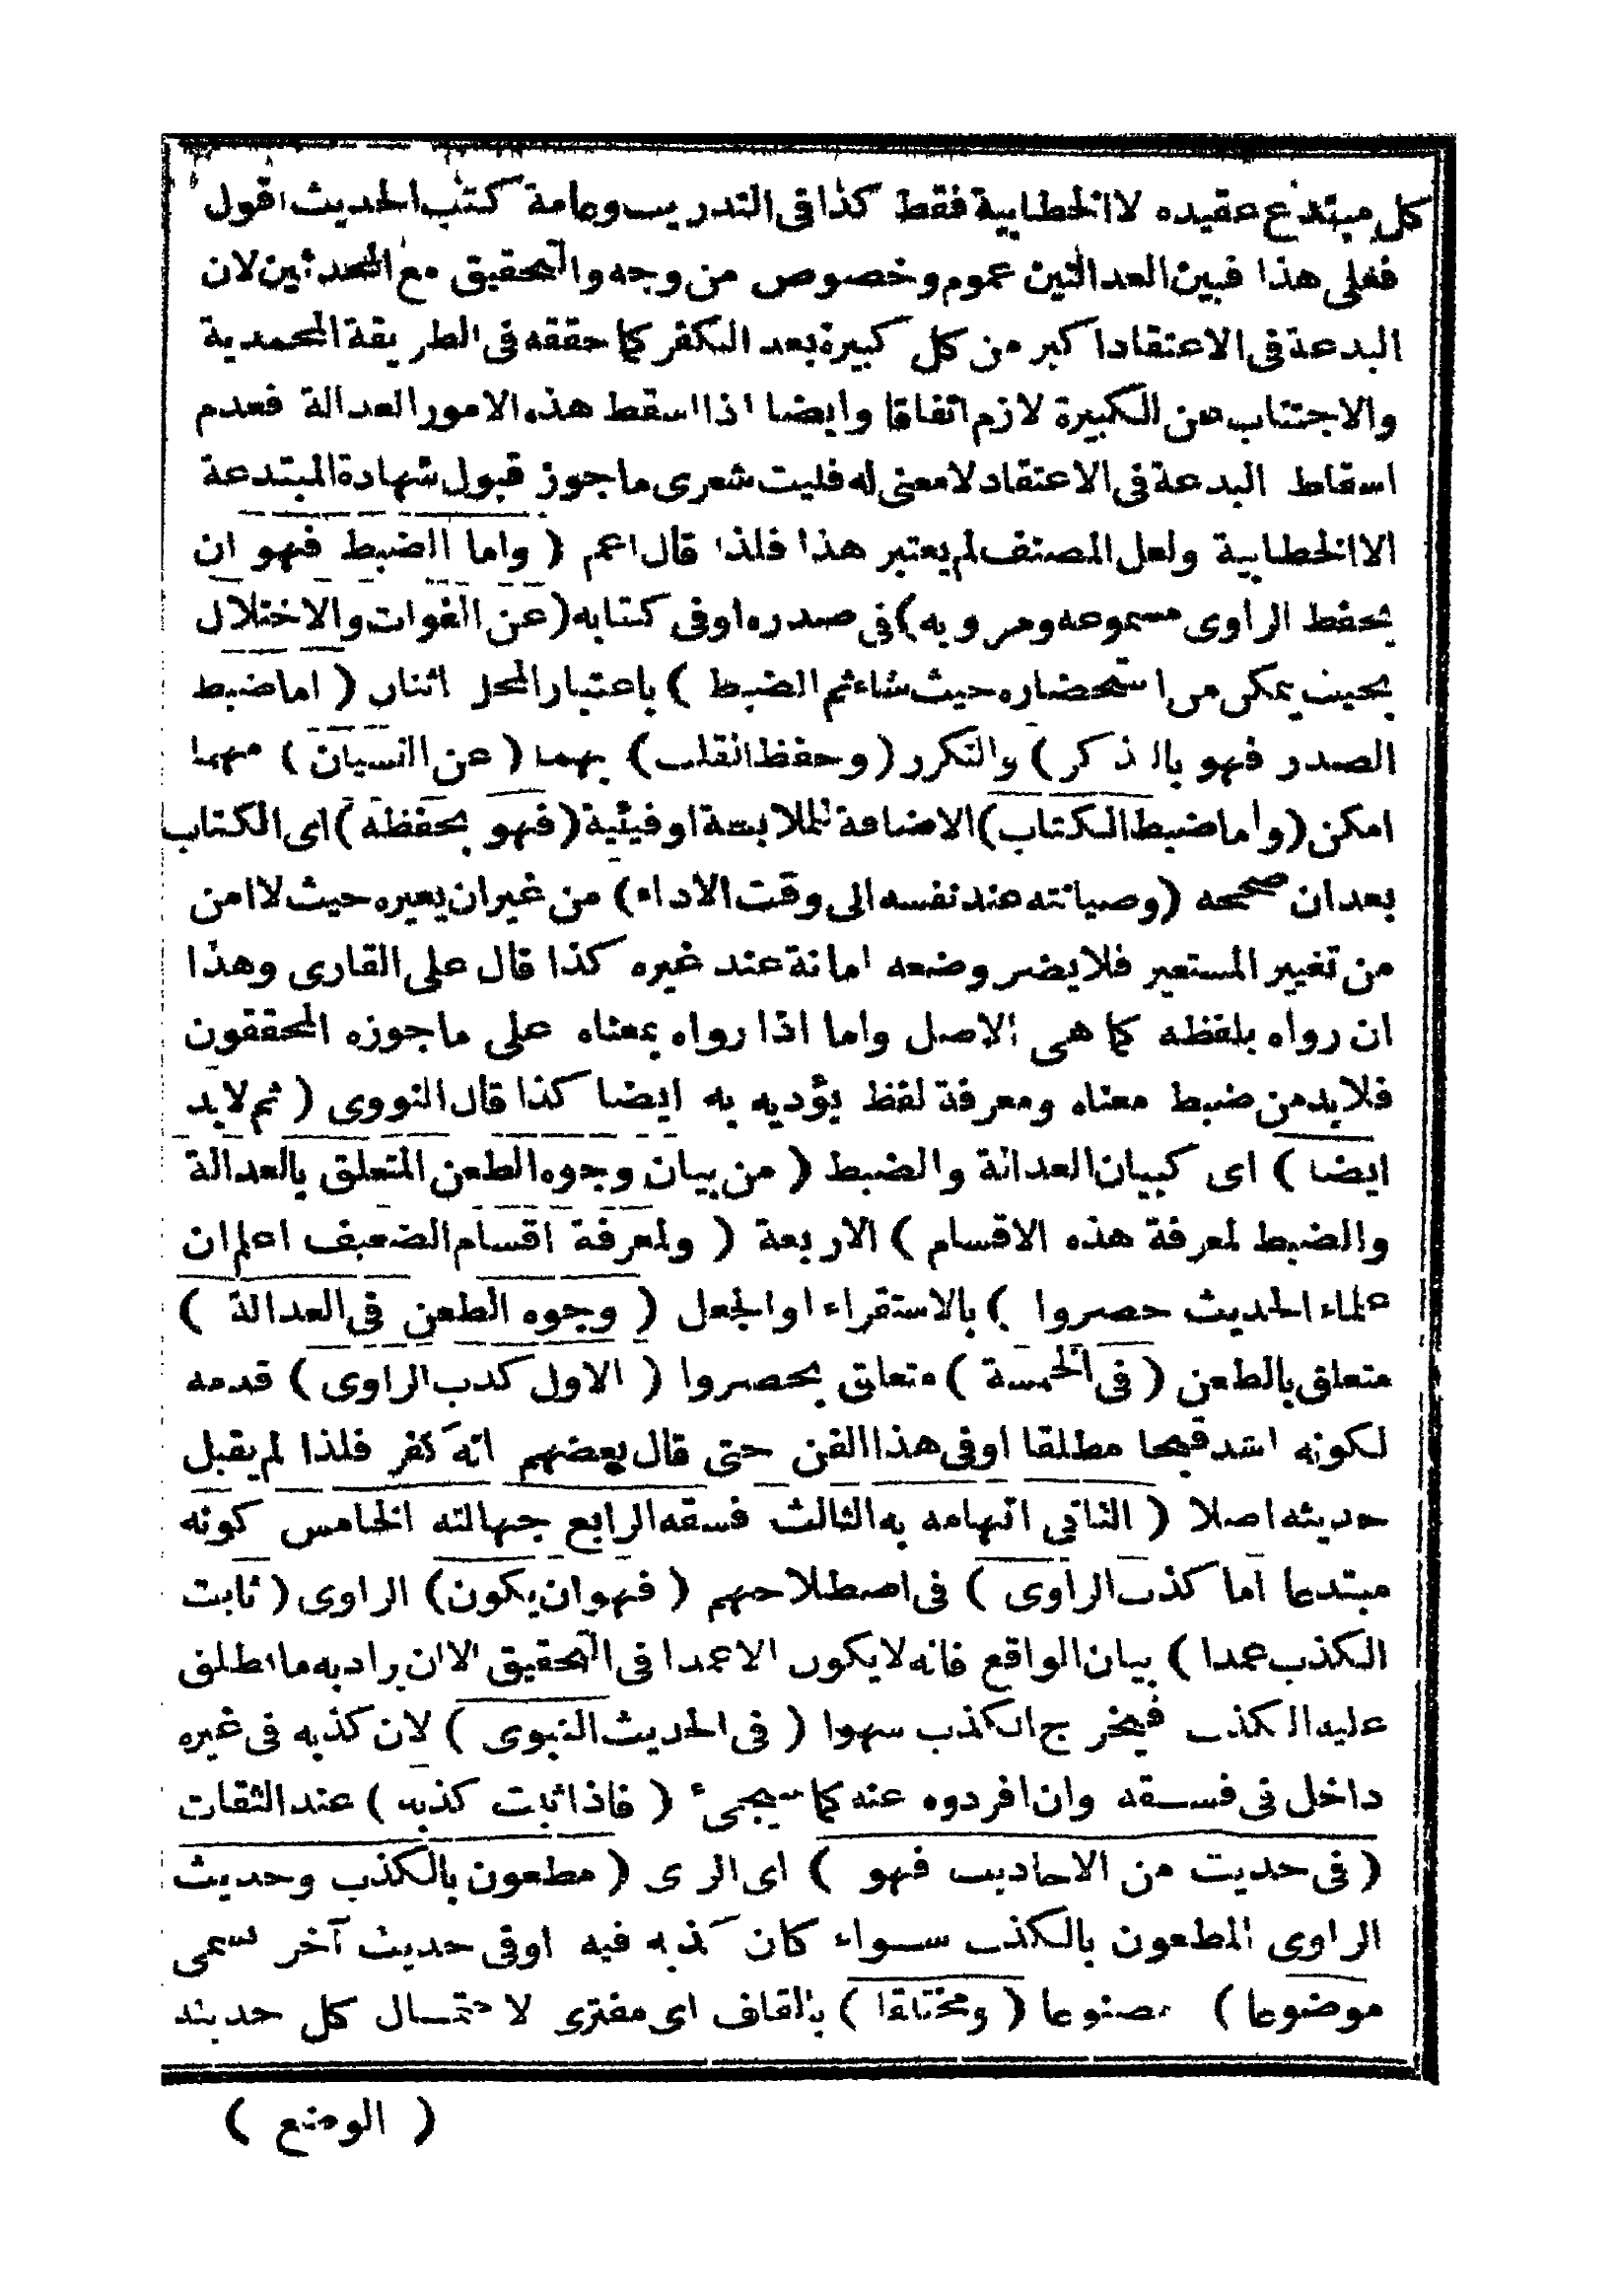 كل مبتدع عقيده لا الخطابية فقط كذا في التدريب وعامة كتب الحديث اقول
فعلى هذا فبين العدالتين عموم وخصوص من وجه والتحقيق مع المحدثين لان
البدعة في الاعتقاد اكبر من كل كبيرة بعد الكفر كما حققه في الطريقة المحمدية
والاجتناب عن الكبيرة لازم اتفاقا وايضا اذا اسقط هذه الامور العدالة فعدم
اسقاط البدعة في الاعتقاد لا معنى له فليت شعرى ما جوز قبول شهادة المبتدعة
الا الخطابية ولعل المصنف لم يعتبر هذا فلذا قال اعم ( واما الضبط فهو ان
يحفظ الراوى مسموعه ومرويه ) في صدره او في كتابه ( عن الفوات والاختلال
بحيث يمكن من استحضاره حيث شاء ثم الضبط ) باعتبار المحل اثنان ( اما ضبط
الصدر فهو بالذكر ) والتكرر ( وحفظ القلب ) بهما ( عن النسيان ) مهما
امكن ( واما ضبط الكتاب ) الاضافة للملابسة او فيئية ( فهو بحفظه ) اى الكتاب
بعد ان صححه ( وصيانته عند نفسه الى وقت الاداء ) من غير ان يعيره حيث لا امن
من تغيير المستعير فلا يضر وضعه امانة عند غيره كذا قال على القارى وهذا
ان رواه بلفظه كما هى الاصل واما اذا رواه بمعناه على ما جوزه المحققون
فلا بد من ضبط معناه ومعرفة لفظ يؤديه به ايضا كذا قال النووى ( ثم لا بد
ايضا ) اى كبيان العدالة والضبط ( من بيان وجوه الطعن المتعلق بالعدالة
والضبط لمعرفة هذه الاقسام ) الاربعة ( ولمعرفة اقسام الضعيف اعلم ان
علماء الحديث حصروا ) بالاستقراء او الجعل ( وجوه الطعن فى العدالة )
متعلق بالطعن ( فى الخمسة ) متعلق بحصروا ( الاول كذب الراوى ) قدمه
لكونه اشد قبحا مطلقا او فى هذا الفن حتى قال بعضهم انه كفر فلذا لم يقبل
حديثه اصلا ( الثانى اتهامه به الثالث فسقه الرابع جهالته الخامس كونه
مبتدعا اما كذب الراوى ) فى اصطلاحهم ( فهو ان يكون ) الراوى ( ثابت
الكذب عمدا ) بيان الواقع فانه لا يكون الا عمدا فى التحقيق الا ان يراد به ما اطلق
عليه الكذب فيخرج الكذب سهوا ( فى الحديث النبوى ) لان كذبه فى غيره
داخل فى فسقه وان افردوه عنه كما سيجىء ( فاذا ثبت كذبه ) عند الثقات
( فى حديث من الاحاديث فهو ) اى الر ى ( مطعون بالكذب وحديث
الراوى المطعون بالكذب سواء كان كذبه فيه او فى حديث آخر يسمى
موضوعا ) مصنوعا ( ومختلقا ) بالقاف اى مفترى لاحتمال كل حديث
( الوضع )